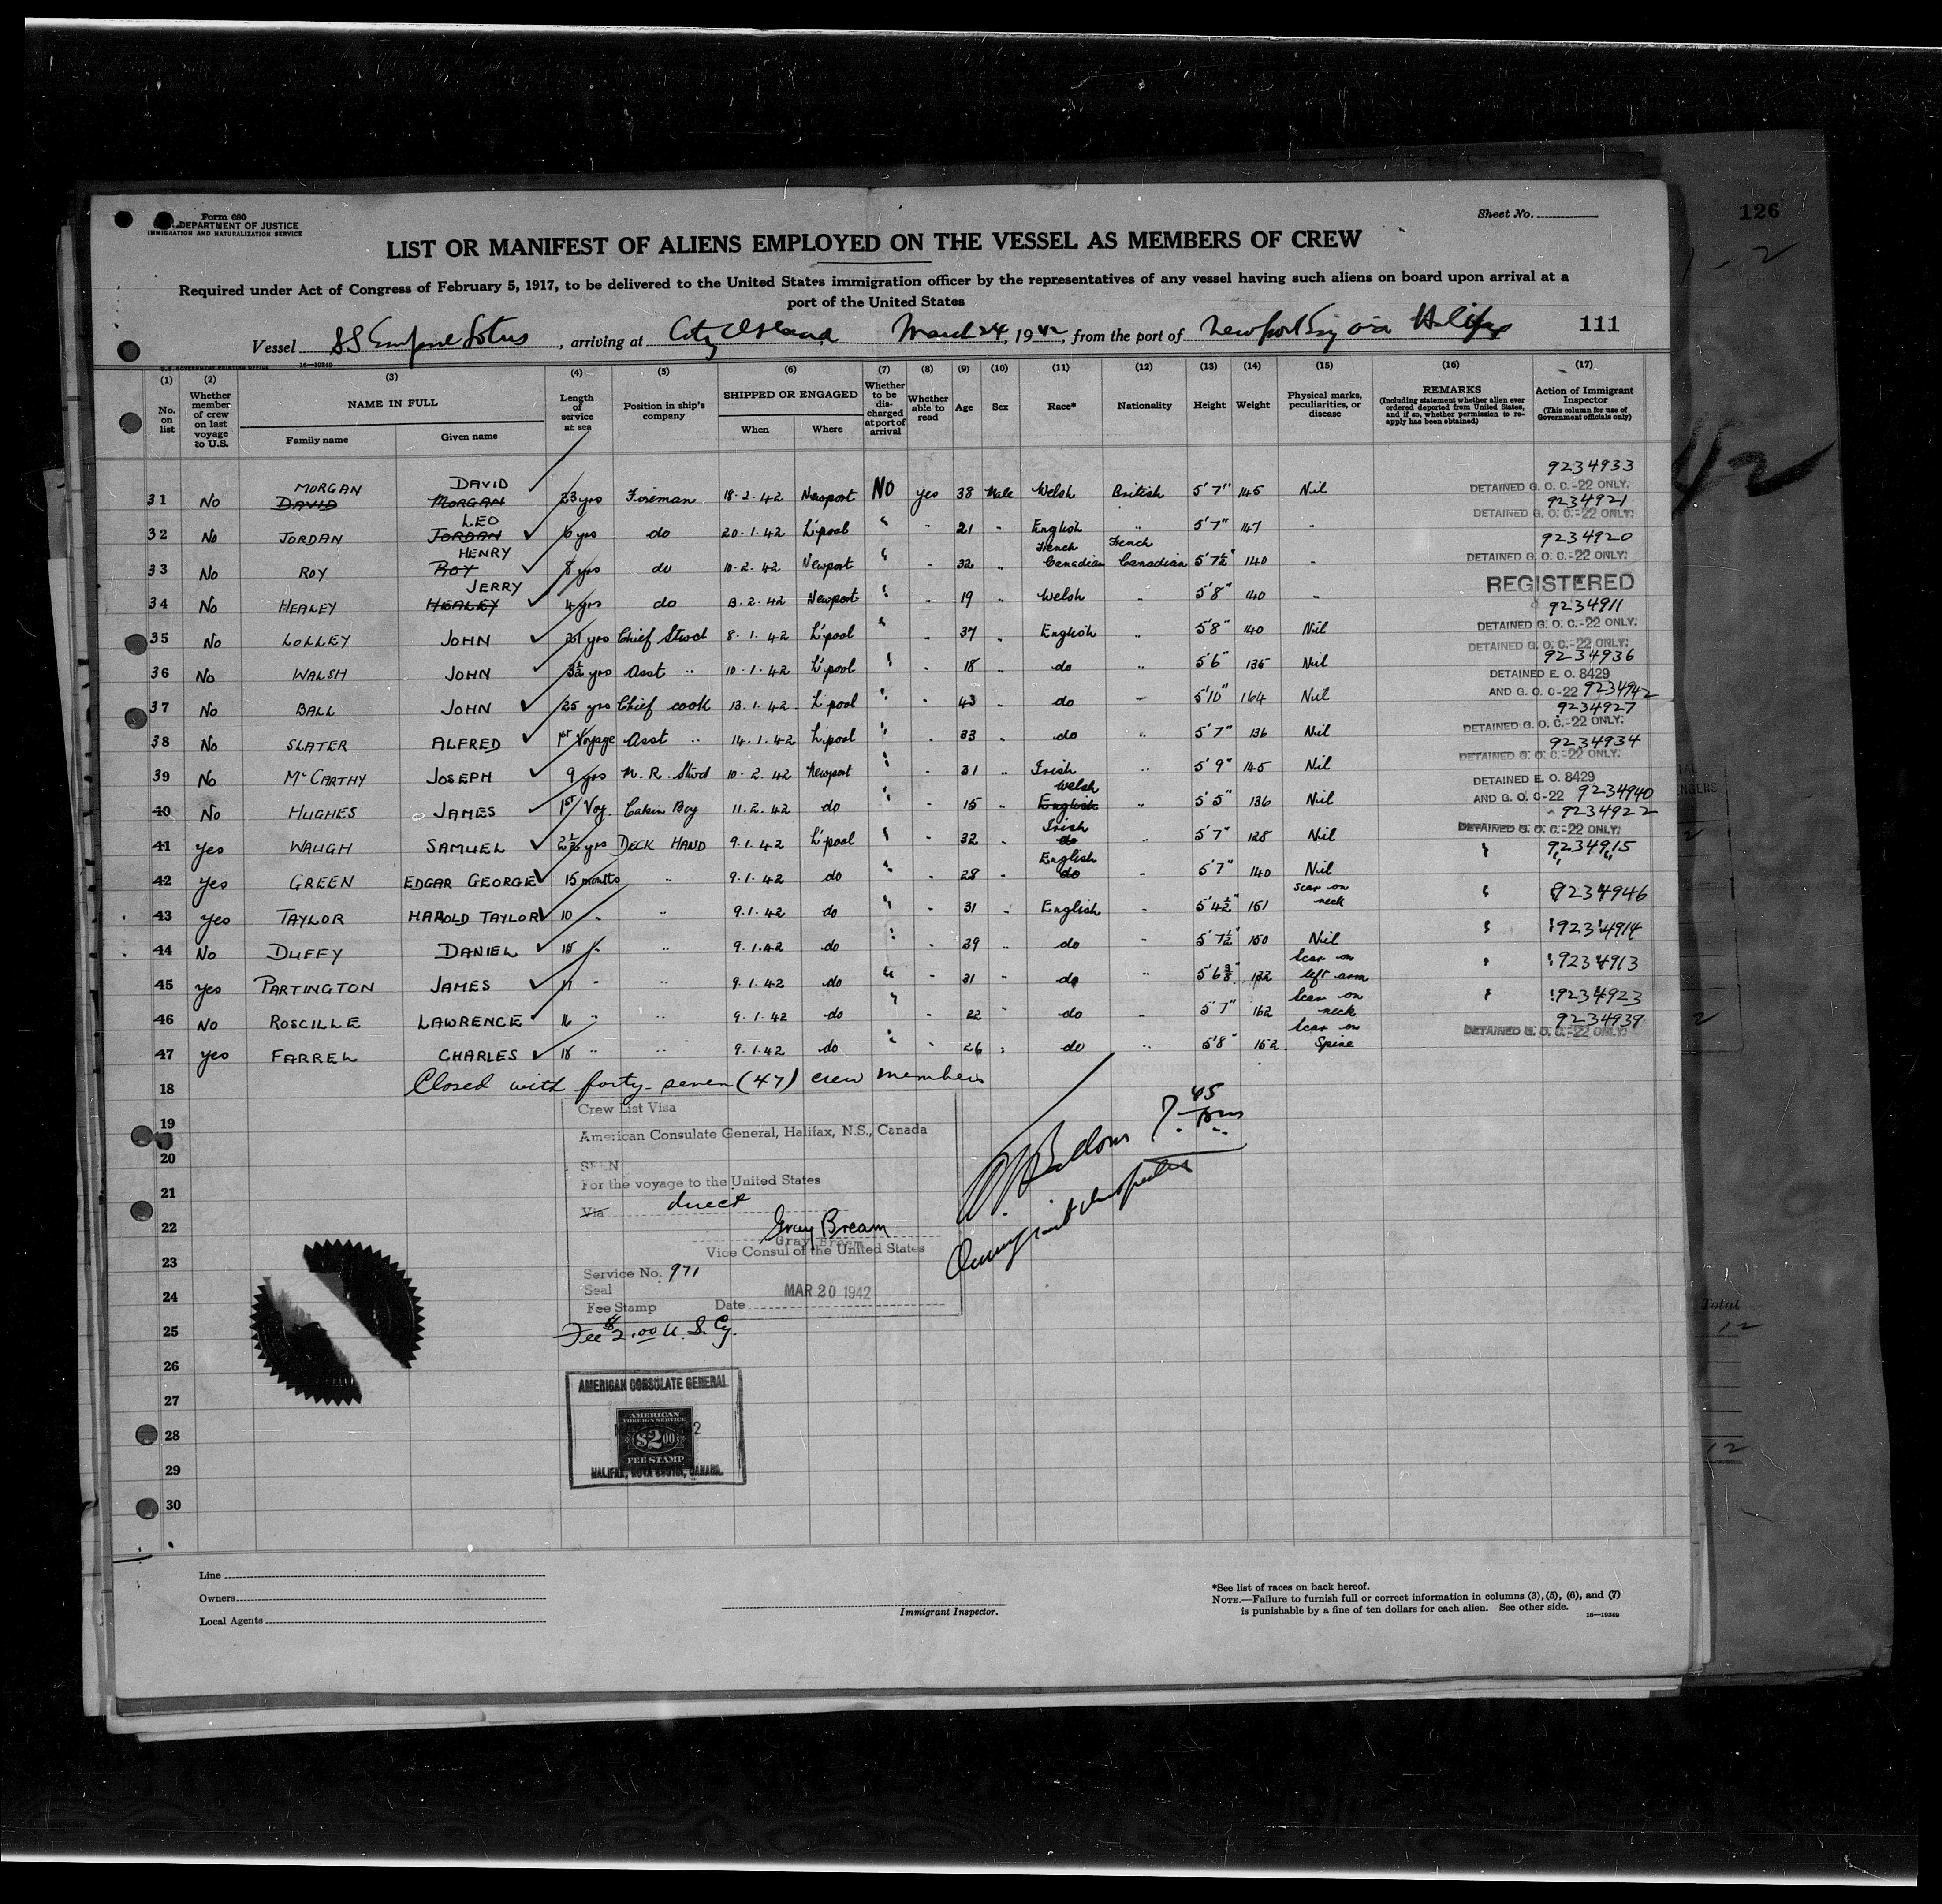 126
Form 680
DEPARTMENT OF JUSTICE
IMMIGRATION AND NATURALIZATION SERVICE
Sheet No.
LIST OR MANIFEST OF ALIENS EMPLOYED ON THE VESSEL AS MEMBERS OF CREW
Required under Act of Congress of February 5, 1917, to be delivered to the United States immigration officer by the representatives of any vessel having such aliens on board upon arrival at a
port of the United States
Vessel SS Empire Lotus, arriving at City Island, March 24, 1942, from the port of Newport Eng via Halifax 111
16—19349
(1) (2) (3) (4) (5) (6) (7) (8) (9) (10) (11) (12) (13) (14) (15) (16) (17)
No. on list
Whether member of crew on last voyage to U.S.
NAME IN FULL
Family name Given name
Length of service at sea
Position in ship's company
SHIPPED OR ENGAGED
When Where
Whether to be discharged at port of arrival
Whether able to read
Age
Sex
Race*
Nationality
Height
Weight
Physical marks, peculiarities, or disease
REMARKS
(Including statement whether alien ever ordered deported from United States, and if so, whether permission to reapply has been obtained)
Action of Immigrant Inspector
(This column for use of Government officials only)
9234933
MORGAN DAVID DETAINED G. O. C.-22 ONLY.
31 No DAVID MORGAN 23 yrs Fireman 18.2.42 Newport NO yes 38 Male Welsh British 5'7" 145 Nil 9234921
LEO DETAINED G. O. C.-22 ONLY.
32 No JORDAN JORDAN 6 yrs do 20.1.42 L'pool " " 21 " English " 5'7" 147 " 9234920
HENRY French French DETAINED G. O. C.-22 ONLY.
33 No ROY ROY 8 yrs do 10.2.42 Newport " " 32 " Canadian Canadian 5'7½" 140 "
JERRY REGISTERED
34 No HEALEY HEALEY 4 yrs do 13.2.42 Newport " " 19 " Welsh " 5'8" 140 " 9234911
DETAINED G. O. C.-22 ONLY.
35 No LOLLEY JOHN 21 yrs Chief Stwd 8.1.42 L'pool " " 37 " English 5'8" 140 Nil
DETAINED G. O. C.-22 ONLY.
9234936
36 No WALSH JOHN 3½ yrs Asst " 10.1.42 L'pool " " 18 " do " 5'6" 135 Nil
DETAINED E. O. 8429
AND G. O. C-22 9234942
37 No BALL JOHN 25 yrs Chief cook 13.1.42 L'pool " " 43 " do " 5'10" 164 Nil
9234927
DETAINED G. O. C.-22 ONLY.
38 No SLATER ALFRED 1st Voyage Asst " 14.1.42 L'pool " " 33 " do " 5'7" 136 Nil
9234934
DETAINED G. O. C.-22 ONLY.
39 No McCARTHY JOSEPH 9 yrs M.R. Stwd 10.2.42 Newport " " 31 " Irish 5'9" 145 Nil
DETAINED E. O. 8429
Welsh AND G. O. C-22 9234940
40 No HUGHES JAMES 1st Voy. Cabin Boy 11.2.42 do " " 15 " English " 5'5" 136 Nil
9234922
Irish DETAINED G. O. C.-22 ONLY.
41 yes WAUGH SAMUEL 2½ yrs DECK HAND 9.1.42 L'pool " " 32 " do 5'7" 128 Nil " 9234915
English
42 yes GREEN EDGAR GEORGE 15 months " 9.1.42 do " " 28 " do 5'7" 140 Nil
Scar on
43 yes TAYLOR HAROLD TAYLOR 10 " " 9.1.42 do " " 31 " English " 5'4½" 151 neck " 9234946
44 No DUFFY DANIEL 15 " " 9.1.42 do " " 29 " do " 5'7½" 150 Nil " 9234914
Scar on
45 yes PARTINGTON JAMES 11 " " 9.1.42 do " " 31 do " 5'6⅜" 132 left arm " 9234913
Scar on
46 No ROSCILLE LAWRENCE 16 " " 9.1.42 do " " 22 " do " 5'7" 162 neck " 9234923
9234939
Scar on DETAINED G. O. C.-22 ONLY.
47 yes FARREL CHARLES 18 " " 9.1.42 do " " 26 " do " 5'8" 152 Spine
Closed with forty-seven (47) crew members
18
19
20
21
22
23
24
25
26
27
28
29
30
Crew List Visa
American Consulate General, Halifax, N.S., Canada
SEEN
For the voyage to the United States
Via direct
Gray Bream
Gray Bream
Vice Consul of the United States
Service No. 971
Seal
MAR 20 1942
Fee Stamp Date
Fee $2.00 U.S. Cy.
7.45 pm
Immigrant Inspector
AMERICAN CONSULATE GENERAL
AMERICAN
FOREIGN SERVICE
$2.00
FEE STAMP
HALIFAX, NOVA SCOTIA, CANADA.
Total
12
12
Line
Owners
Local Agents
Immigrant Inspector.
*See list of races on back hereof.
NOTE.—Failure to furnish full or correct information in columns (3), (5), (6), and (7)
is punishable by a fine of ten dollars for each alien. See other side.
16—19349